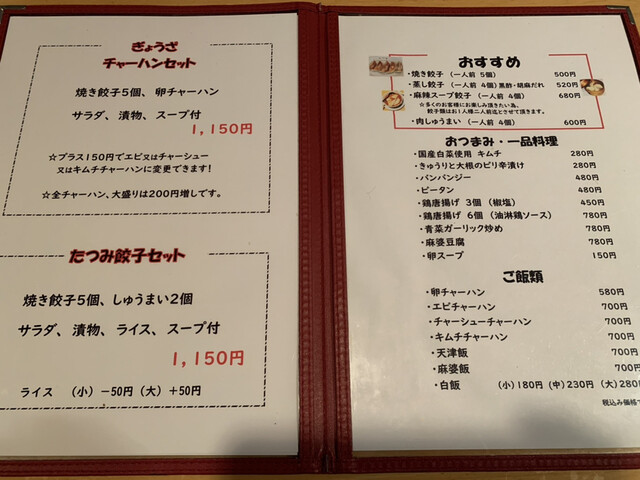 ぎょうざ
チャーハンセット
焼き餃子5個、 卵チャーハン
サラダ、 漬物、 スープ付
1,150円
☆プラス150円でエビ又はチャーシュー
又はキムチチャーハンに変更できます!
☆全チャーハン、大盛りは200円増しです。
たつみ餃子セット
焼き餃子5個、しゅうまい2個
サラダ、 漬物、 ライス、 スープ付
1,150円
ライス (小)-50円(大)+50円
おすすめ
・焼き餃子 (一人前 5個) 500円
・蒸し餃子 (一人前 4個)黒酢・胡麻だれ 520円
・麻辣スープ餃子 (一人前 4個) 680円
☆多くのお客様にお楽しみ頂きたい為、
餃子類はお1人様二人前迄とさせて頂きます。
・肉しゅうまい (一人前 4個) 600円
おつまみ・一品料理
・国産白菜使用 キムチ 280円
・きゅうりと大根のピリ辛漬け 280円
・バンバンジー 480円
・ピータン 480円
・鶏唐揚げ 3個 (椒塩) 450円
・鶏唐揚げ 6個 (油淋鶏ソース) 780円
・青菜ガーリック炒め 780円
・麻婆豆腐 780円
・卵スープ 150円
ご飯類
・卵チャーハン 580円
・エビチャーハン 700円
・チャーシューチャーハン 700円
・キムチチャーハン 700円
・天津飯 700円
・麻婆飯 700円
・白飯 (小)180円(中)230円(大)280
税込み価格